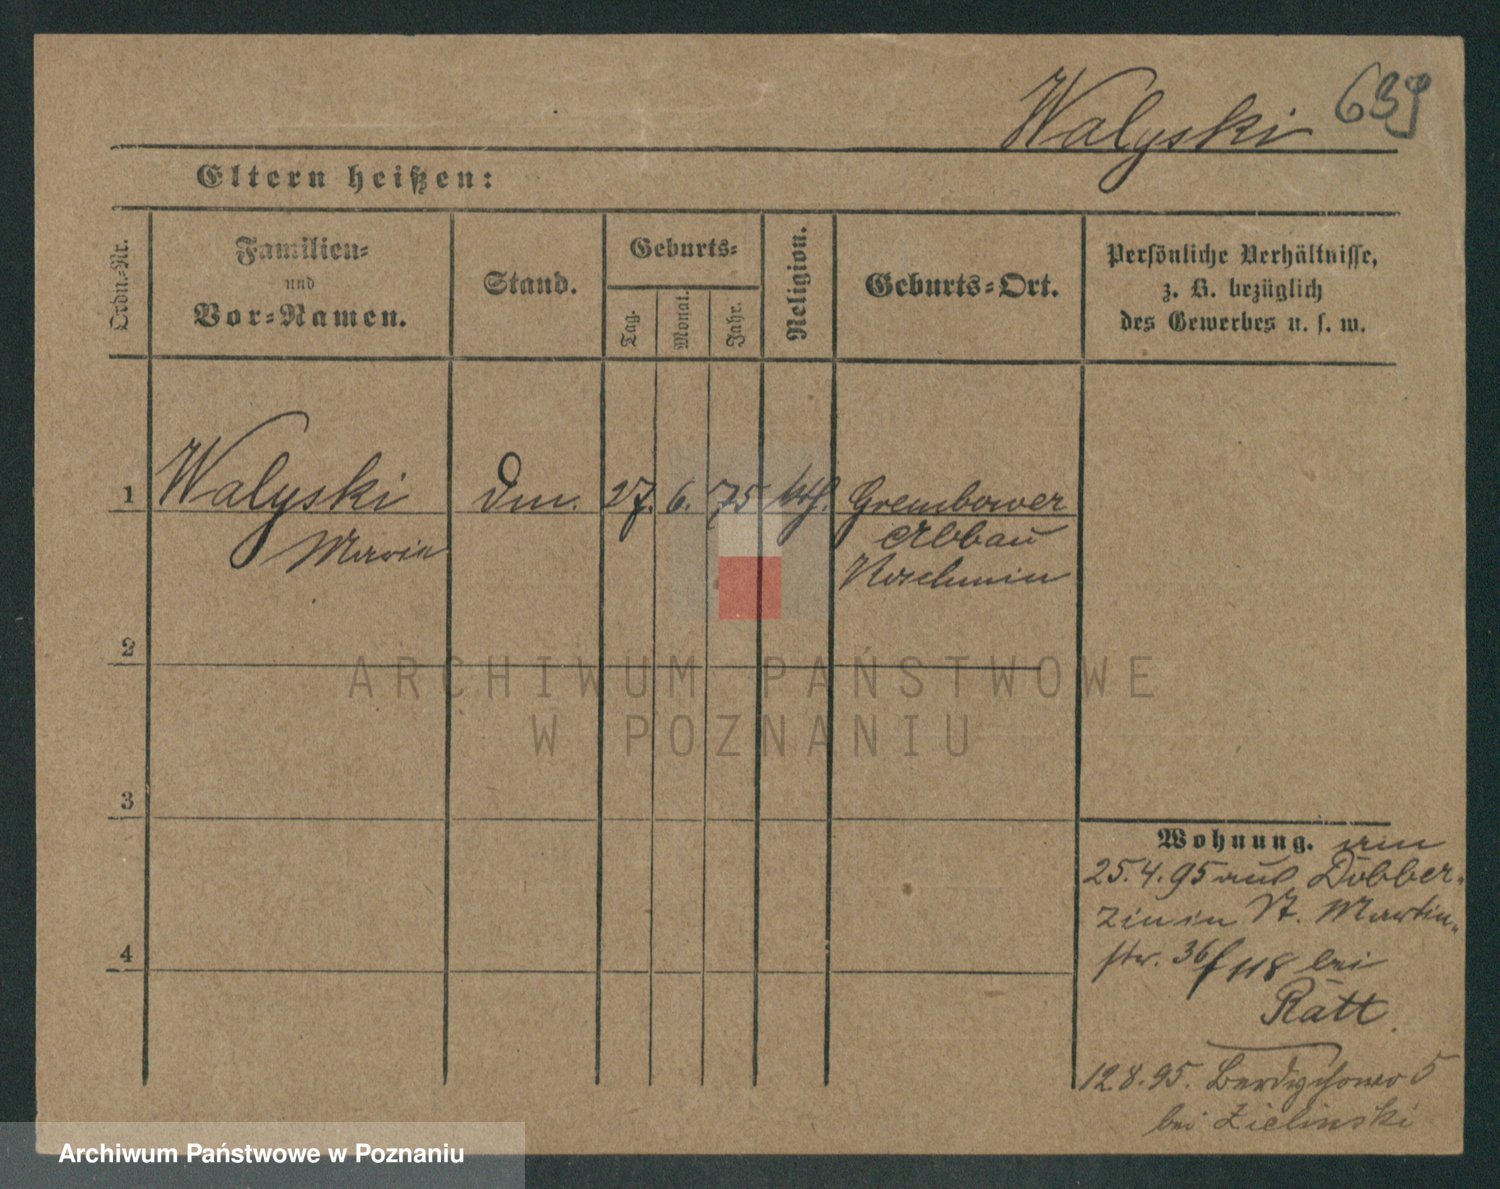 Walyski 639
Eltern heißen:
Ordn.-Nr.
Familien-
und
Vor-Namen.
Stand.
Geburts-
Tag.
Monat.
Jahr.
Religion.
Geburts-Ort.
Persönliche Verhältnisse,
z. B. bezüglich
des Gewerbes u. s. w.
1 Walyski Dm. 27. 6. 75 kth. Grembower
Marie Abbau
Koschmin
2
3
4
Wohnung. am
25.4.95 aus Dobber-
zin in St. Martin-
str. 36 118 bei
Rätt.
12.8.95. Berdychowo 5
bei Zielinski
ARCHIWUM PAŃSTWOWE
W POZNANIU
Archiwum Państwowe w Poznaniu